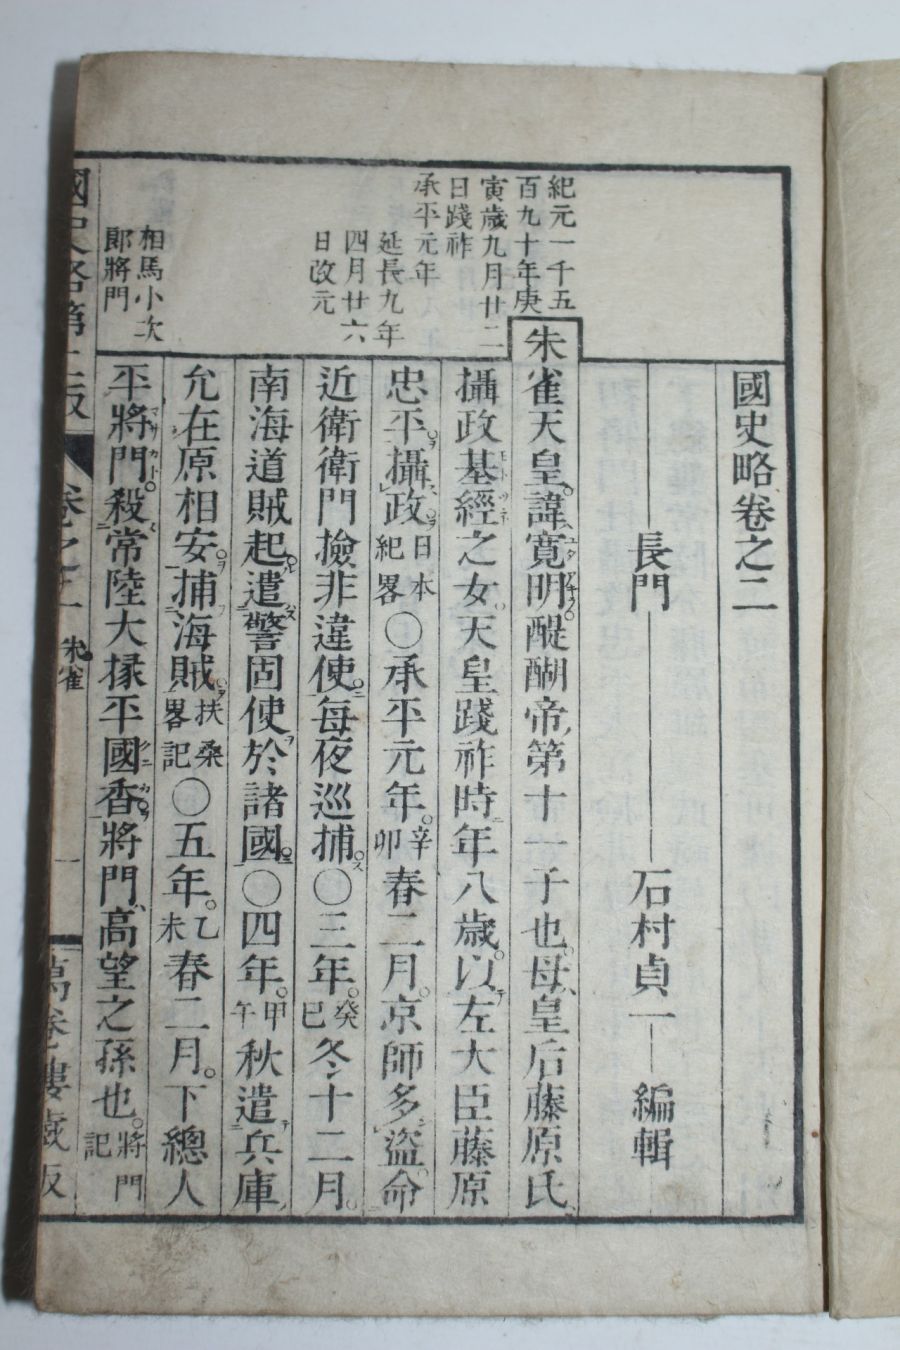 國史略卷之二
長門 石村貞一 編輯
紀元一千五
百九十年庚
寅歲九月廿二
日踐祚
承平元年
延長九年
四月廿六
日改元
相馬小次
郎將門
朱雀天皇。諱寛明。醍醐帝第十一子也。母皇后藤原氏
攝政基經之女。天皇踐祚時年八歲。以左大臣藤原
忠平攝政。日本紀畧〇承平元年。辛卯春二月。京師多盜。命
近衛衛門撿非違使。每夜巡捕。〇三年。癸巳冬十二月。
南海道賊起。遣警固使於諸國。〇四年。甲午秋遣兵庫
允在原相安。捕海賊。扶桑畧記〇五年。乙未春二月。下總人
平將門。殺常陸大掾平國香。將門高望之孫也。將門記
國史略第二版 卷之二 朱雀 一 萬卷樓藏版